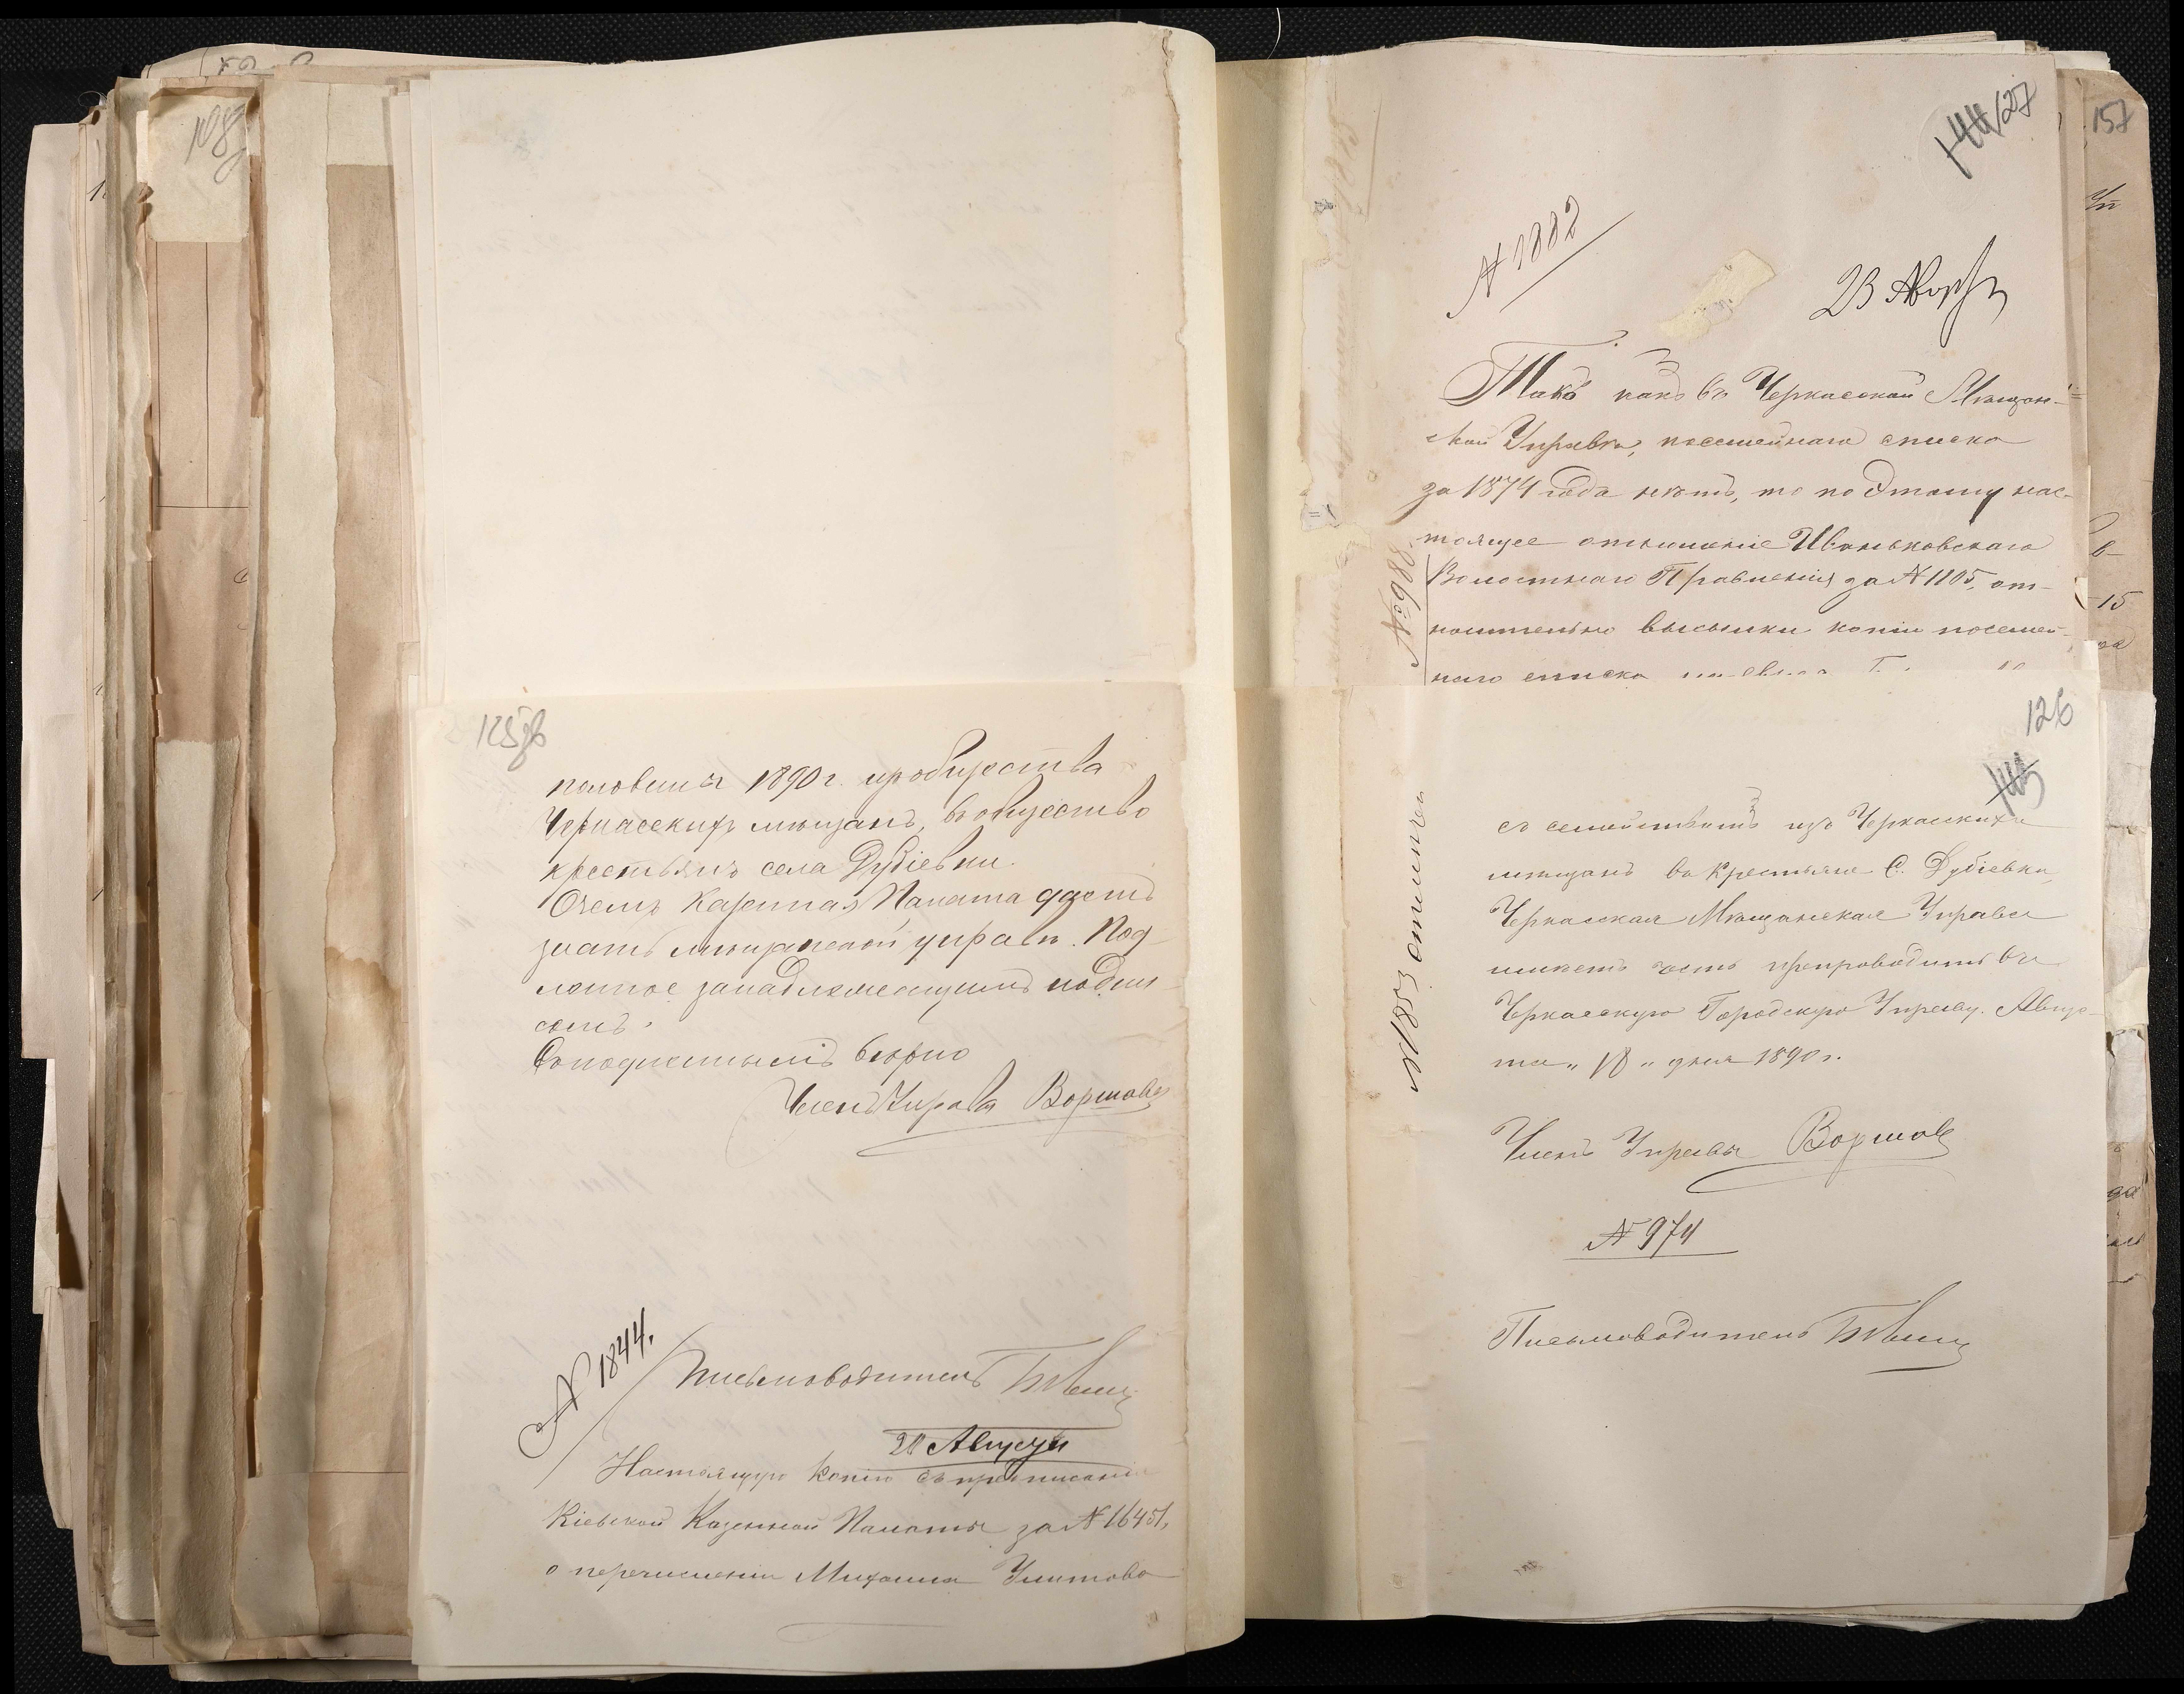 108
125 зв
половины 1890 г. изъ общества
Черкасскихъ мѣщанъ, въ общество
крестьянъ села Дубіевки.
О чемъ Казенная Палата даетъ
знать мѣщанской управѣ. Под-
линное за надлежащимъ подпи-
сомъ.
Съ подлиннымъ вѣрно
Членъ Управы Воршовъ
№ 1844.
Письмоводитель
20 Августа
Настоящую копію съ предписанія
Кіевской Казенной Палаты за № 16451,
о перечисленіи Михаила Уматова
144/127
157
№ 1882
23 Авгу
Такъ какъ въ Черкасской Мѣщан-
ской Управѣ, посемейнаго списка
за 1874 года нѣтъ, то по этому нас-
тоящее отношеніе Иваньковскаго
Волостнаго Правленія за № 1105, от-
носительно высылки копіи посемей-
наго списка
№ 988
126
143
съ семействомъ изъ Черкасскихъ
мѣщанъ въ крестьяне С. Дубіевки,
Черкасская Мѣщанская Управа
имѣетъ честь препроводить въ
Черкасскую Городскую Управу. Авгус-
та „ 18 " дня 1890 г.
Членъ Управы Воршовъ
№ 974
Письмоводитель
№ 1853